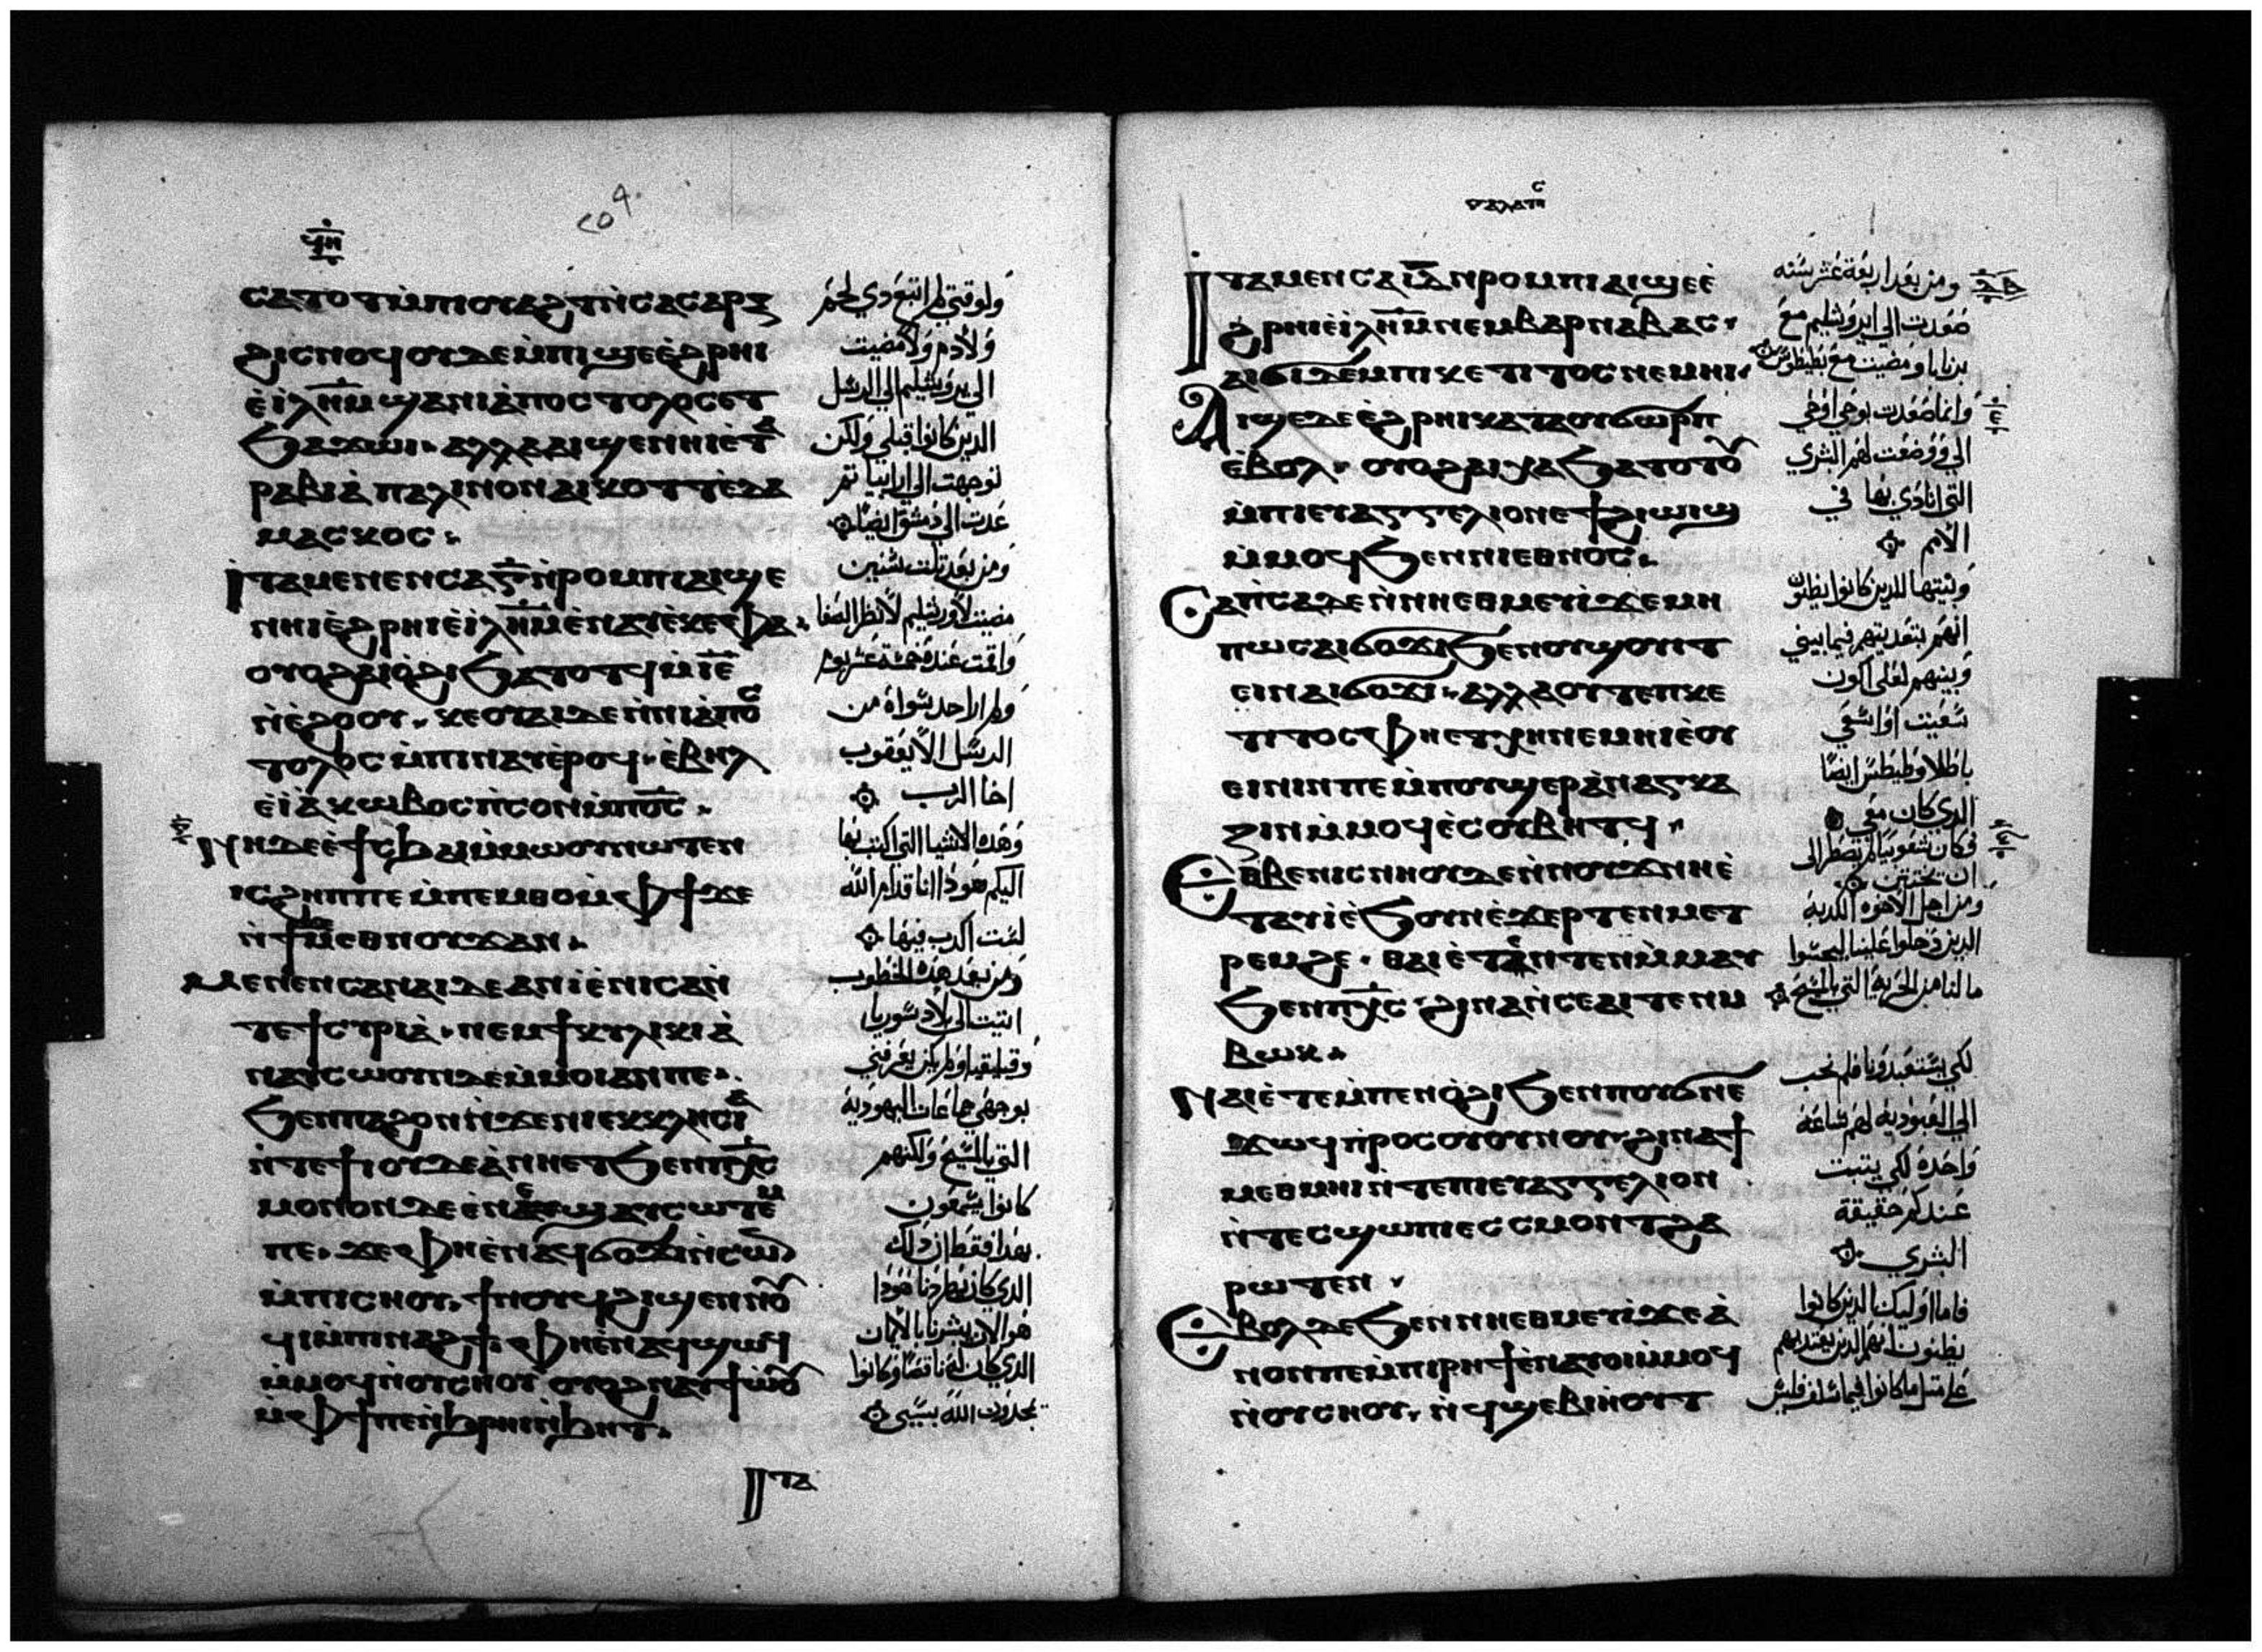 ϥⲏ
ⲥⲁⲧⲟⲧ ⲙ̀ⲡⲓⲟⲩⲁϩⲧ ⲛ̀ⲥⲁ ⲥⲁⲣⲝ
ϩⲓ ⲥⲛⲟϥ ⲟⲩⲇⲉ ⲙ̀ⲡⲓϣⲉ ⲉ̀ϩⲣⲏⲓ
ⲉ̀ⲓⲗⲏ̅ⲙ ϣⲁ ⲛⲓⲁ̀ⲡⲟⲥⲧⲟⲗⲟⲥ ⲉⲧ
ϧⲁϫⲱⲓ ⲁⲗⲗⲁ ⲁⲓϣⲉⲛⲏⲓ ⲉ̀ⲧⲁ
ⲣⲁⲃⲓⲁ̀ ⲡⲁⲗⲓⲛ ⲟⲛ ⲁⲓⲕⲟⲧⲧ ⲉ̀ⲇⲁ
ⲙⲁⲥⲕⲟⲥ
ⲓⲧⲁ ⲙⲉⲛⲉⲛⲥⲁ ⲅ̅ ⲛ̀ⲣⲟⲙⲡⲓ ⲁⲓϣⲉ
ⲛⲏⲓ ⲉ̀ϩⲣⲏⲓ ⲉ̀ⲓⲗⲏ̅ⲙ ⲉ̀ⲛⲁⲩ ⲉ̀ⲕⲉⲫⲁ
ⲟⲩⲟϩ ⲁⲓⲟ̀ϩⲓ ϧⲁⲧⲟⲧϥ ⲙ̀ⲓ̅ⲉ̅
ⲛ̀ⲉ̀ϩⲟⲟⲩ ⲕⲉⲟⲩⲁⲓ ⲇⲉ ⲛ̀ⲛⲓⲁ̀ⲡⲟⲥ
ⲧⲟⲗⲟⲥ ⲙ̀ⲡⲓⲛⲁⲩ ⲉ̀ⲣⲟϥ ⲉ̀ⲃⲏⲗ
ⲉ̀ⲓⲁ̀ⲕⲱⲃⲟⲥ ⲡ̀ⲥⲟⲛ ⲙ̀ⲡⲟ̅ⲥ̅
ⲛⲏ ⲇⲉ ⲉ̀ϯⲥϧⲁⲓ ⲙ̀ⲙⲱⲟⲩ ⲛⲱⲧⲉⲛ
ⲓⲥ ϩⲏⲡⲡⲉ ⲙ̀ⲡⲉⲙⲑⲟ ⲙ̀ⲫϯ ϫⲉ
ⲛ̀ϯϫⲉⲙⲉⲑⲛⲟⲩϫ ⲁⲛ
ⲙⲉⲛⲉⲛⲥⲁ ⲛⲁⲓ ⲇⲉ ⲁⲓⲓ̀ ⲉ̀ⲛⲓⲥⲁ ⲛ̀
ⲧⲉ ϯⲥⲩⲣⲓⲁ̀ ⲛⲉⲙ ϯⲕⲩⲗⲓⲕⲓⲁ̀
ⲛⲁⲩⲥⲱⲟⲩⲛ ⲇⲉ ⲙ̀ⲙⲟⲓ ⲁⲛ ⲡⲉ
ϧⲉⲛ ⲡⲁϩⲟ ⲛ̀ϫⲉ ⲛⲓⲉⲕⲕⲗⲏⲥⲓⲁ
ⲛ̀ⲧⲉ ϯⲓⲟⲩⲇⲉⲁ̀ ⲛⲏⲉⲧϧⲉⲛ ⲡⲭ̅ⲥ
ⲙⲟⲛⲟⲛ ⲇⲉ ⲉ̀ⲛⲉ ϣⲁⲩⲥⲱⲧⲉⲙ
ⲡⲉ ϫⲉ ⲫⲏ ⲉ̀ⲛⲁϥϭⲟϫⲓ ⲛ̀ⲥⲱⲛ
ⲙ̀ⲡⲓⲥⲏⲟⲩ ϯⲛⲟⲩ ϥϩⲓϣⲉⲛⲛⲟⲩ
ϥⲓ ⲙ̀ⲡⲛⲁϩϯ ⲫⲏ ⲉ̀ⲛⲁϥϣⲱϥ
ⲙ̀ⲙⲟϥ ⲛ̀ⲟⲩⲥⲏⲟⲩ ⲟⲩⲟϩ ⲛⲁⲩϯⲱ̀ⲟⲩ
ⲙ̀ⲫϯ ⲡⲉ ⲛ̀ϧⲣⲏⲓ ⲛ̀ϧⲏⲧ
ⲓⲧⲁ
ولوقتي لم اتبع دي لحم
ولادم ولامضيت
الي يروشليم الي الرسل
الدين كانوا قبلي ولكن
توجهت الي ارابيا تم
عدت الي دمشق ايضا
ومن بعد تلت سنين
مضيت لاورشليم لانظر الصفا
واقمت عنده خمسة عشر يوم
ولم ارا احد سواه من
الرسل الا يعقوب
اخا الرب
وهده الاشيا التي اكتب بها
اليكم هودا انا قدام الله
لست اكدب فيها
ومن بعد هده الخطوب
اتيت الي بلاد سوريا
وقيليقيا ولم يكن يعرفني
بوجهي جماعات اليهودية
التي بالمسيح ولكنهم
كانوا يسمعون
بهدا فقط ان داك
الدي كان يطردنا هودا
هو الان يبشرنا بالايمان
الدي كان له ناقضا وكانوا
يمجدون الله بسببي
ⲅⲁⲗⲁⲧⲏⲥ
ⲓⲧⲁ ⲙⲉⲛⲥⲁ ⲓ̅ⲇ̅ ⲛ̀ⲣⲟⲙⲡⲓ ⲁⲓϣⲉ ⲉ̀
ϩⲣⲏⲓ ⲉ̀ⲓⲗⲏ̅ⲙ ⲛⲉⲙ ⲃⲁⲣⲛⲁⲃⲁⲥ
ⲁⲓϭⲓ ⲇⲉ ⲙ̀ⲡⲕⲉⲧⲓⲧⲟⲥ ⲛⲉⲙⲏⲓ
ⲁⲓϣⲉ ⲇⲉ ⲉ̀ϩⲣⲏⲓ ⲕⲁⲧⲁ ⲟⲩϭⲱⲣⲡ
ⲉ̀ⲃⲟⲗ ⲟⲩⲟϩ ⲁⲓⲭⲁ ϧⲁⲧⲟⲧⲟⲩ
ⲙ̀ⲡⲓⲉⲩⲁⲅⲅⲉⲗⲓⲟⲛ ⲉϯϩⲓⲱⲓϣ
ⲙ̀ⲙⲟϥ ϧⲉⲛ ⲛⲓⲉⲑⲛⲟⲥ
ⲥⲁⲡ̀ⲥⲁ ⲇⲉ ⲛ̀ⲛⲏⲉⲑⲙⲉⲩⲓ ϫⲉ ⲙⲏ
ⲡⲱⲥ ⲁⲓϭⲟϫⲓ ϧⲉⲛ ⲟⲩϣⲟⲩⲓⲧ
ⲉⲓⲛⲁϭⲟϫⲓ ⲁⲗⲗⲁ ⲟⲩⲧⲉ ⲡⲕⲉ
ⲧⲓⲧⲟⲥ ⲫⲏⲉⲧⲭⲏ ⲛⲉⲙⲏⲓ ⲉ̀ⲟⲩ
ⲉⲓⲛⲓⲛ ⲡⲉ ⲙ̀ⲡⲟⲩⲉⲣⲁ̀ⲛⲁⲅⲕⲁ
ⲍⲓⲛ ⲙ̀ⲙⲟϥ ⲉ̀ⲥⲟⲩⲃⲏⲧϥ
ⲉⲑⲃⲉ ⲛⲓⲥⲛⲏⲟⲩ ⲇⲉ ⲛ̀ⲛⲟⲩϫ ⲛⲏⲉ̀
ⲧⲁⲩⲓ̀ ⲉ̀ϧⲟⲩⲛ ⲉ̀ϫⲉⲣ ⲧⲉⲛⲙⲉⲧ
ⲣⲉⲙϩⲉ ⲑⲁⲓ ⲉ̀ⲧⲁⲛ ⲛ̀ⲧⲉⲛ ⲙ̀ⲙⲁⲩ
ϧⲉⲛ ⲡⲭ̅ⲥ ϩⲓⲛⲁ ⲛ̀ⲥⲉⲁⲓⲧⲉⲛ ⲙ
ⲃⲱⲕ
ⲛⲁⲓ ⲉ̀ⲧⲉ ⲙ̀ⲡⲉⲛⲟ̀ϩⲓ ϧⲉⲛ ⲡⲟⲩϭⲛⲉ
ϫⲱϥ ⲡ̀ⲣⲟⲥ ⲟⲩⲟⲩⲛⲟⲩ ϩⲓⲛⲁ ϯ
ⲙⲉⲑⲙⲏⲓ ⲛ̀ⲧⲉ ⲡⲓⲉⲩⲁⲅⲅⲉⲗⲓⲟⲛ
ⲛ̀ⲧⲉⲥϣⲱⲡⲓ ⲉⲥⲥⲙⲟⲛⲧ ϩⲁ
ⲣⲱⲧⲉⲛ
ⲉ̀ⲃⲟⲗ ⲇⲉ ϧⲉⲛ ⲛⲏⲉⲑⲙⲉⲩⲓ ϫⲉ ⲁ̀
ⲛⲟⲛ ⲡⲉ ⲙ̀ⲡⲓⲣⲏϯ ⲉ̀ⲛⲁⲩⲟⲓ ⲙ̀ⲙⲟϥ
ⲛ̀ⲟⲩⲥⲏⲟⲩ ⲛ̀ϥϣⲉⲃⲓⲏⲟⲩⲧ
ومن بعد اربعة عشر سنه
صعدت الي ايروشليم مع
برنابا ومضيت مع بطيطوس
وانما صعدت بوحي اوحي
الي ووضعت لهم البشري
التي انادي بها في
الامم
وبينتها للدين كانوا يظنون
فيما بيني
وبينهم لعلي اكون
سعيت او اسعي
باطلا وطيطس ايضا
الدي كان معي
ان يختتن
ومن اجل الاخوه الكدبه
الدين دخلوا علينا ليجسوا
مالنا من الحرية التي بالمسيح
لكي يستعبدونا فلم نحب
الي العبوديه لهم ساعة
واحدة لكي يتبت
عندكم حقيقة
البشري
فاما اوليك الدين كانوا
يظنون